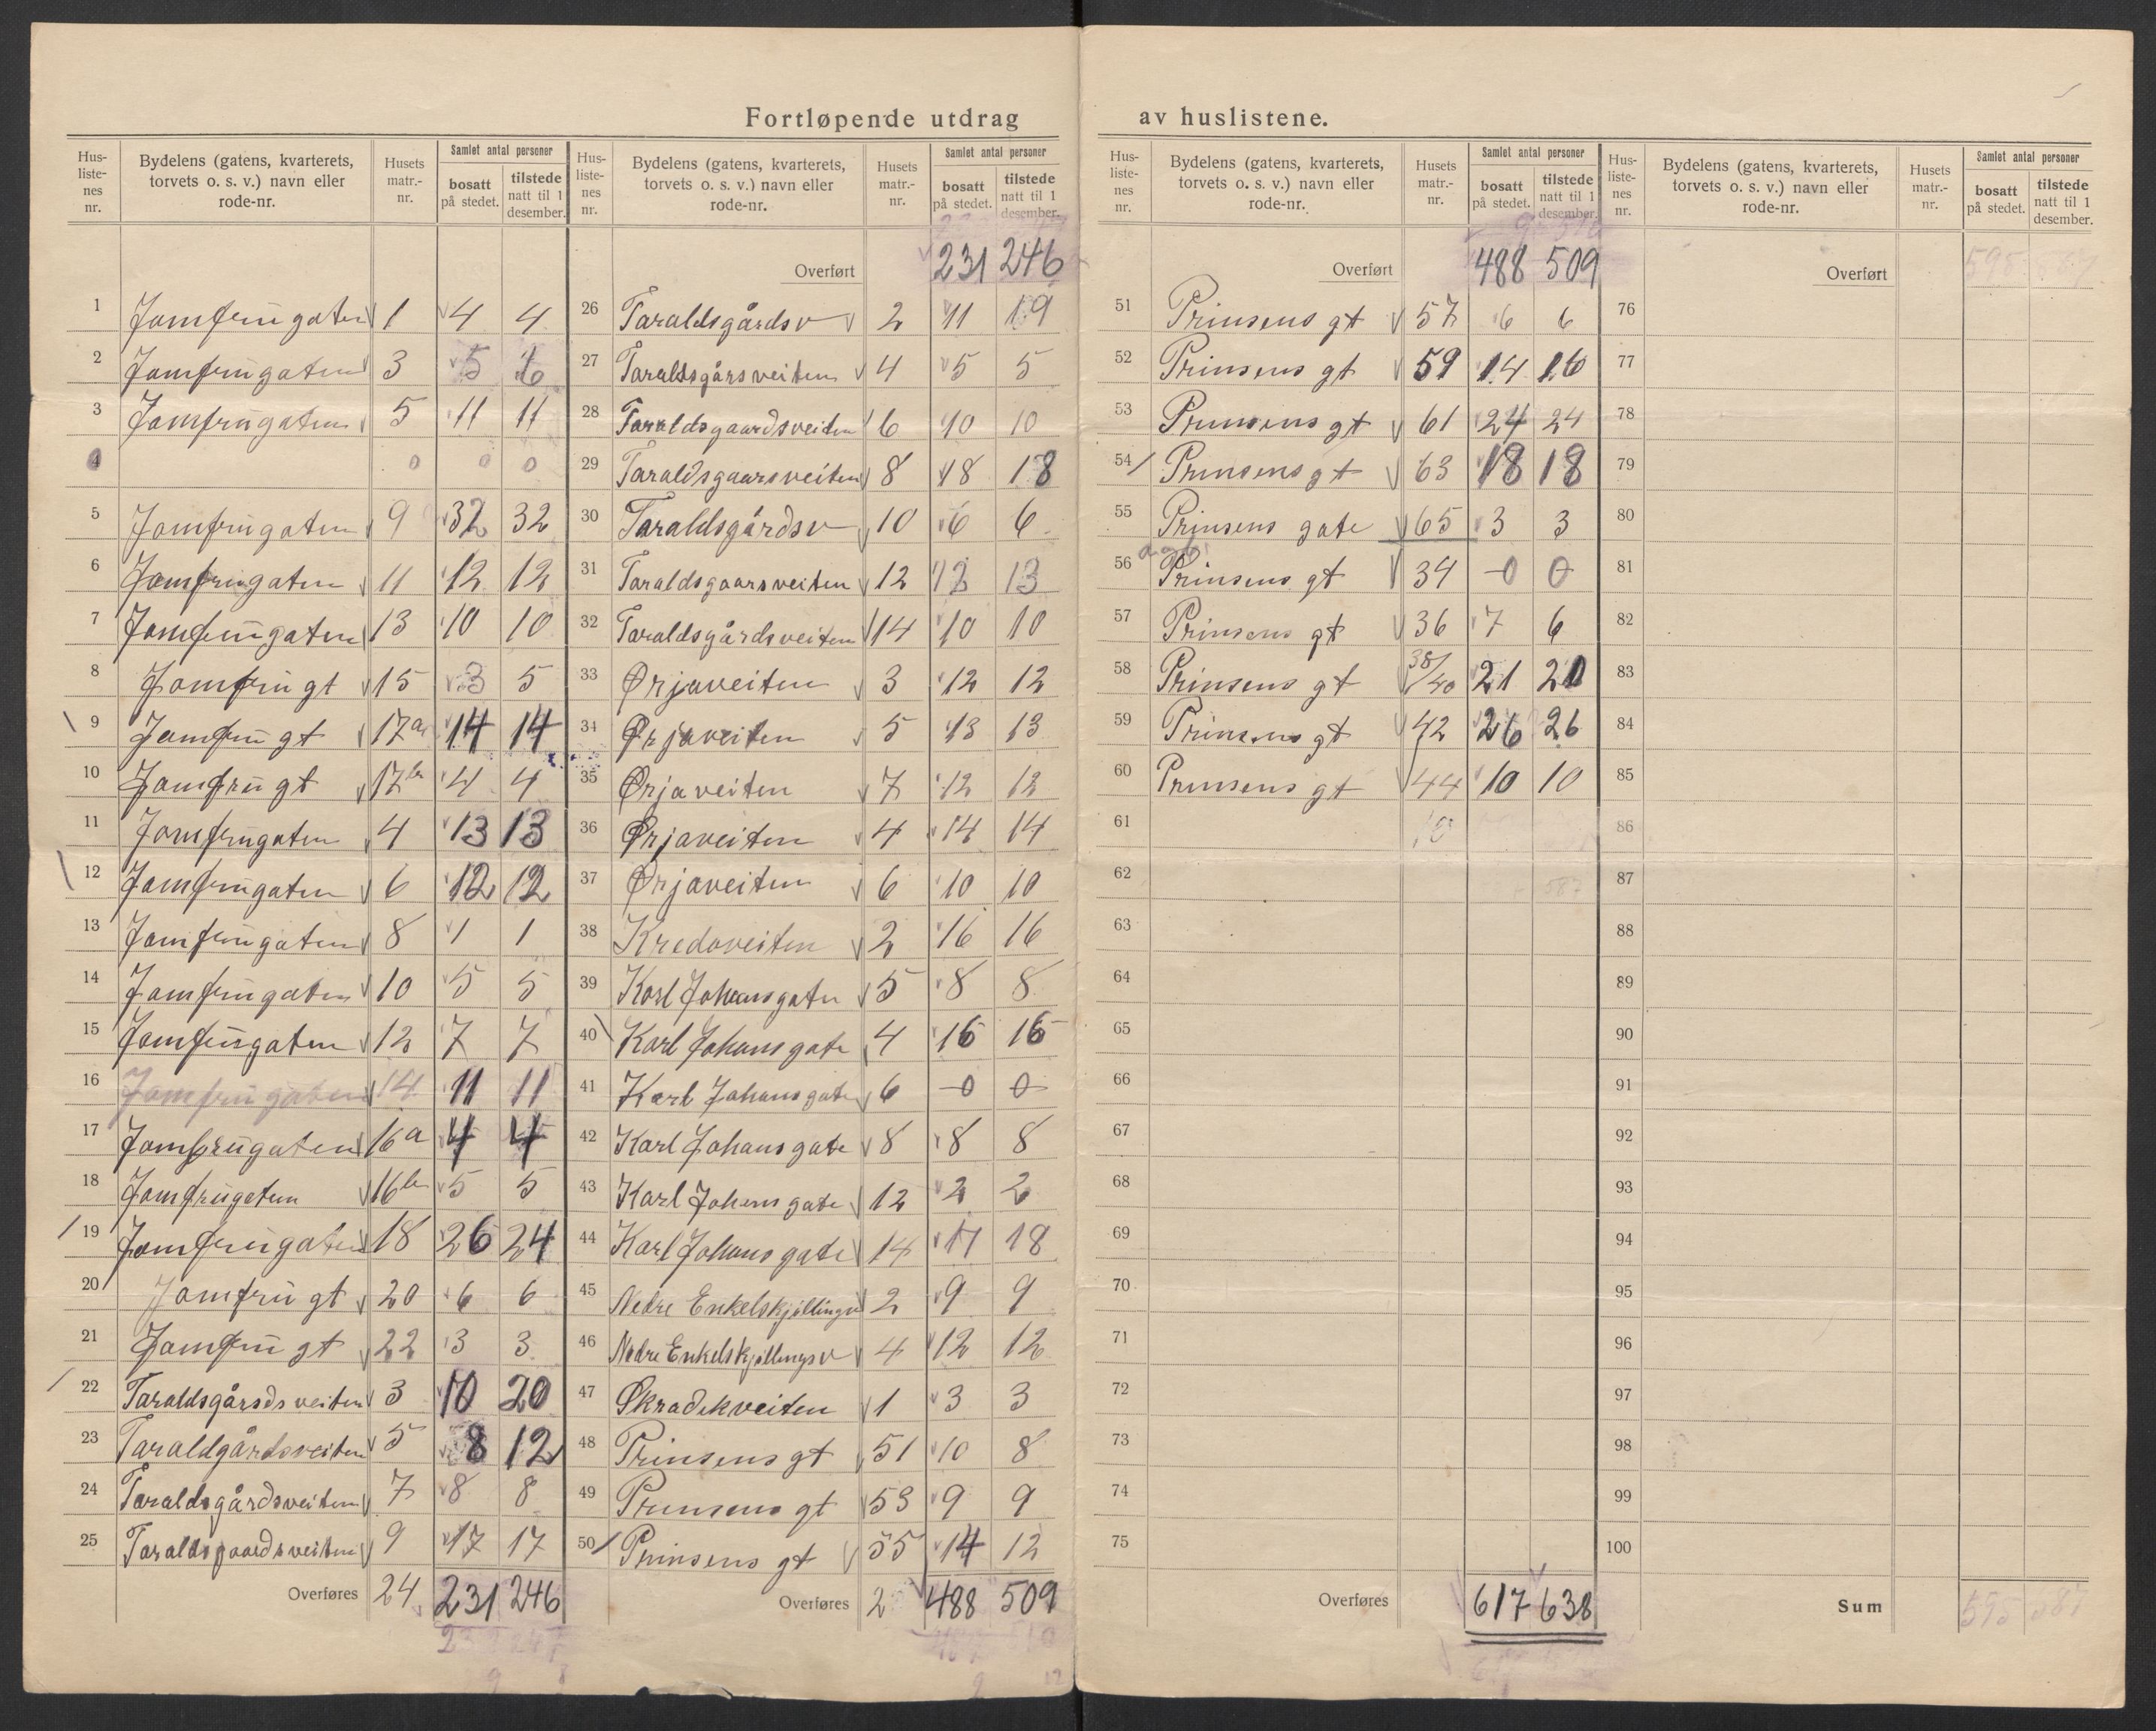 Fortløpende utdrag av huslistene.
Hus-liste-nes nr. Bydelens (gatens, kvarterets, torvets o. s. v.) navn eller rode-nr. Husets matr.-nr. Samlet antal personer bosatt på stedet. tilstede natt til 1 desember.
1 Jomfrugaten 1 4 4
2 Jomfrugaten 3 5 6
3 Jomfrugaten 5 11 11
4 0 0 0
5 Jomfrugaten 9 32 32
6 Jomfrugaten 11 12 12
7 Jomfrugaten 13 10 10
8 Jomfrugt 15 3 5
9 Jomfrugt 17a 14 14
10 Jomfrugt 17b 4 4
11 Jomfrugaten 4 13 13
12 Jomfrugaten 6 12 12
13 Jomfrugaten 8 1 1
14 Jomfrugaten 10 5 5
15 Jomfrugaten 12 7 7
16 Jomfrugaten 14 11 11
17 Jomfrugaten 16a 4 4
18 Jomfrugaten 16b 5 5
19 Jomfrugaten 18 26 24
20 Jomfrugt 20 6 6
21 Jomfrugt 22 3 3
22 Taraldsgårsdsveiten 3 10 20
23 Taraldgårdsveiten 5 8 12
24 Taraldsgårdsveiten 7 8 8
25 Taraldsgaardsveiten 9 17 17
Overføres 24 231 246
Hus-liste-nes nr. Bydelens (gatens, kvarterets, torvets o. s. v.) navn eller rode-nr. Husets matr.-nr. Samlet antal personer bosatt på stedet. tilstede natt til 1 desember.
Overført 231 246
26 Taraldsgårdsv 2 11 19
27 Taraldsgårsveiten 4 5 5
28 Taraldsgaardsveiten 6 10 10
29 Taraldsgaarsveiten 8 18 18
30 Taraldsgårdsv 10 6 6
31 Taraldsgaarsveiten 12 13 13
32 Taraldsgårdsveiten 14 10 10
33 Ørjaveiten 3 12 12
34 Ørjaveiten 5 13 13
35 Ørjaveiten 7 12 12
36 Ørjaveiten 4 14 14
37 Ørjaveiten 6 10 10
38 Kredoveiten 2 16 16
39 Karl Johansgate 5 8 8
40 Karl Johans gate 4 16 16
41 Karl Johans gate 6 0 0
42 Karl Johans gate 8 8 8
43 Karl Johans gate 12 2 2
44 Karl Johans gate 14 17 18
45 Nedre Enkelskjillingsv 2 9 9
46 Nedre Enkelskjillingsv 4 12 12
47 Økradekveiten 1 3 3
48 Prinsens gt 51 10 8
49 Prinsens gt 53 9 9
50 Prinsens gt 55 14 12
Overføres 2 488 509
Hus-liste-nes nr. Bydelens (gatens, kvarterets, torvets o. s. v.) navn eller rode-nr. Husets matr.-nr. Samlet antal personer bosatt på stedet. tilstede natt til 1 desember.
Overført 488 509
51 Prinsens gt 57 6 6
52 Prinsens gt 59 14 16
53 Prinsens gt 61 24 24
54 Prinsens gt 63 18 18
55 Prinsens gate 65 3 3
56 Prinsens gt 34 0 0
57 Prinsens gt 36 7 6
58 Prinsens gt 38/40 21 20
59 Prinsens gt 42 26 26
60 Prinsens gt 44 10 10
61 10
62 587
63
64
65
66
67
68
69
70
71
72
73
74
75
Overføres 617 638
Hus-liste-nes nr. Bydelens (gatens, kvarterets, torvets o. s. v.) navn eller rode-nr. Husets matr.-nr. Samlet antal personer bosatt på stedet. tilstede natt til 1 desember.
Overført
76
77
78
79
80
81
82
83
84
85
86
87
88
89
90
91
92
93
94
95
96
97
98
99
100
Sum 595 587